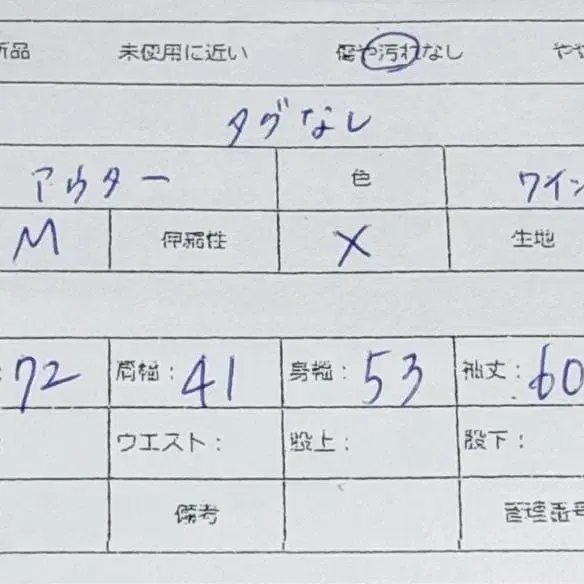 新品 未使用に近い 傷や汚れなし やや
タグなし
アウター 色 ワイン
M 伸縮性 × 生地
: 72 肩幅: 41 身幅: 53 袖丈: 60
: ウエスト: 股上: 股下:
備考 管理番号